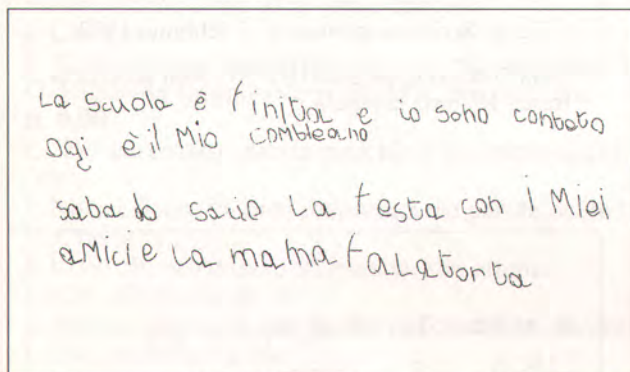 La Scuola è finita e io sono conteto
Ogi è il Mio combleano
sabato saue La festa con i Miei
aMici e La mama fa La torta